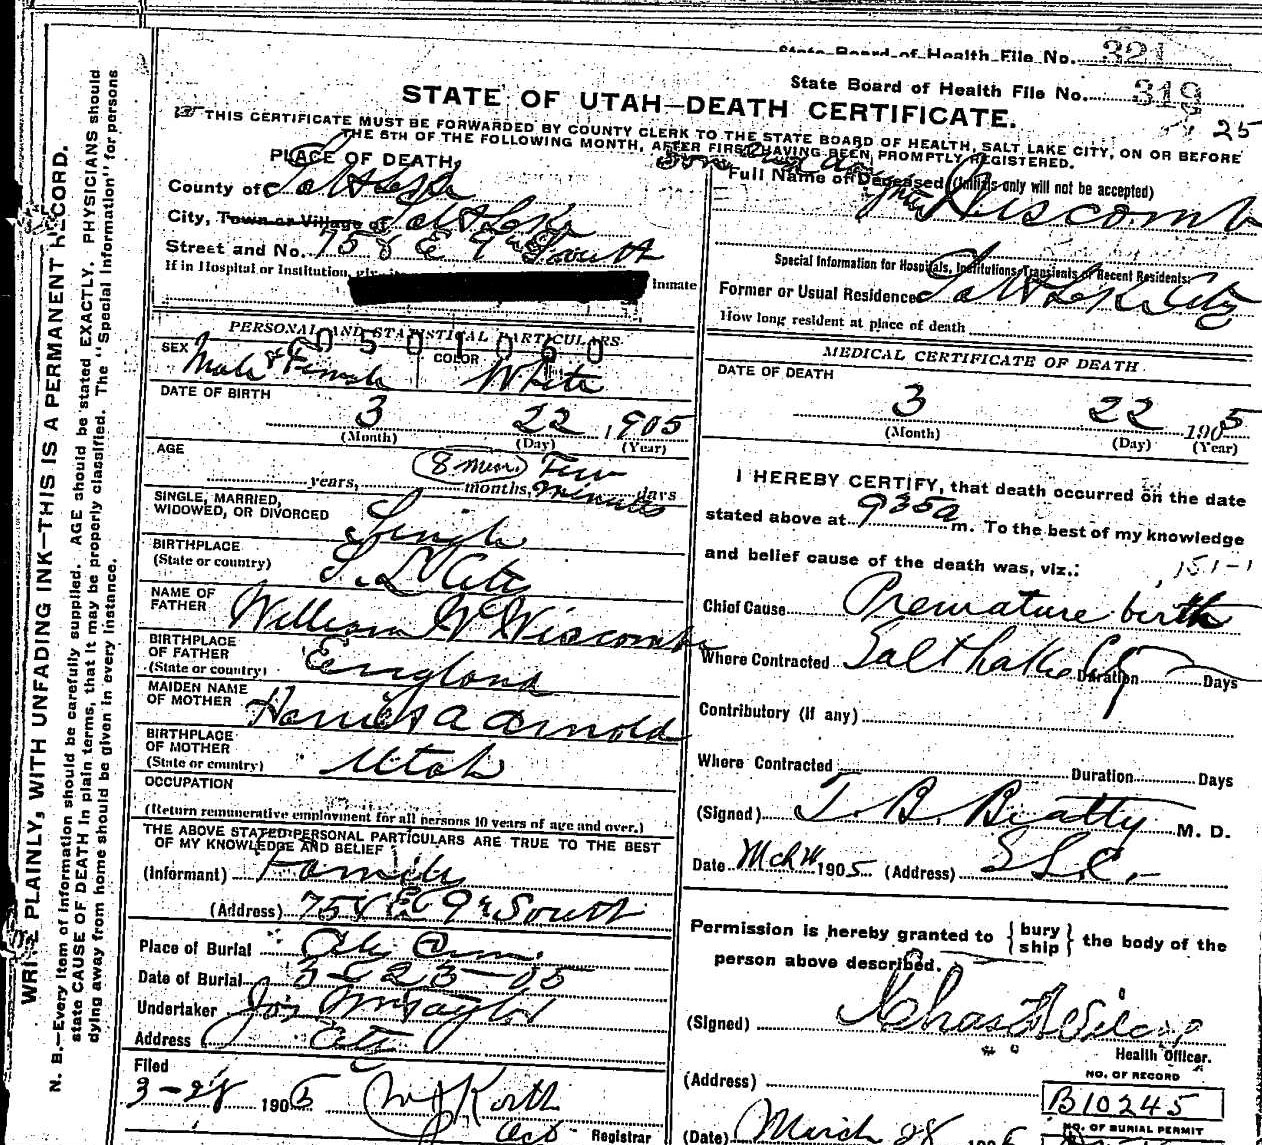 State Board of Health File No. 321
State Board of Health File No. 319
25
STATE OF UTAH—DEATH CERTIFICATE.
THIS CERTIFICATE MUST BE FORWARDED BY COUNTY CLERK TO THE STATE BOARD OF HEALTH, SALT LAKE CITY, ON OR BEFORE
THE 5TH OF THE FOLLOWING MONTH, AFTER FIRST HAVING BEEN PROMPTLY REGISTERED.
PLACE OF DEATH,
County of Salt Lake
City, Town or Village of Salt Lake
Street and No. 758 E 9th South
If in Hospital or Institution, Inmate
Full Name of Deceased (Initials only will not be accepted)
Son and daughter Wiscomb
Special Information for Hospitals, Institutions, Transients or Recent Residents:
Former or Usual Residence Salt Lake City
How long resident at place of death
PERSONAL AND STATISTICAL PARTICULARS
0501060
SEX Male & Female COLOR White
DATE OF BIRTH
3 22 1905
(Month) (Day) (Year)
AGE
years, 8 mon. months, Few minutes days
SINGLE, MARRIED,
WIDOWED, OR DIVORCED Single
BIRTHPLACE
(State or country) S. L. City
NAME OF
FATHER William W Wiscomb
BIRTHPLACE
OF FATHER
(State or country) England
MAIDEN NAME
OF MOTHER Harriet A Arnold
BIRTHPLACE
OF MOTHER
(State or country) Utah
OCCUPATION
(Return remunerative employment for all persons 10 years of age and over.)
THE ABOVE STATED PERSONAL PARTICULARS ARE TRUE TO THE BEST
OF MY KNOWLEDGE AND BELIEF
(Informant) Family
(Address) 758 E 9th South
Place of Burial City Cem.
Date of Burial 3-23-05
Undertaker Jos Wm Taylor
Address City
Filed
3-28 1905
Registrar
MEDICAL CERTIFICATE OF DEATH
DATE OF DEATH
3 22 1905
(Month) (Day) (Year)
I HEREBY CERTIFY, that death occurred on the date
stated above at 935a m. To the best of my knowledge
and belief cause of the death was, viz.: 151-1
Chief Cause Premature birth
Where Contracted Salt Lake City Duration Days
Contributory (if any)
Where Contracted Duration Days
(Signed) T. B. Beatty M. D.
Date Mch 1905 (Address) S L C.
Permission is hereby granted to { bury
ship } the body of the
person above described.
(Signed)
Health Officer.
(Address)
NO. OF RECORD
B10245
NO. OF BURIAL PERMIT
(Date) March 28 190
WRITE PLAINLY, WITH UNFADING INK—THIS IS A PERMANENT RECORD.
N. B.—Every item of information should be carefully supplied. AGE should be stated EXACTLY. PHYSICIANS should
state CAUSE OF DEATH in plain terms, that it may be properly classified. The "Special Information" for persons
dying away from home should be given in every instance.